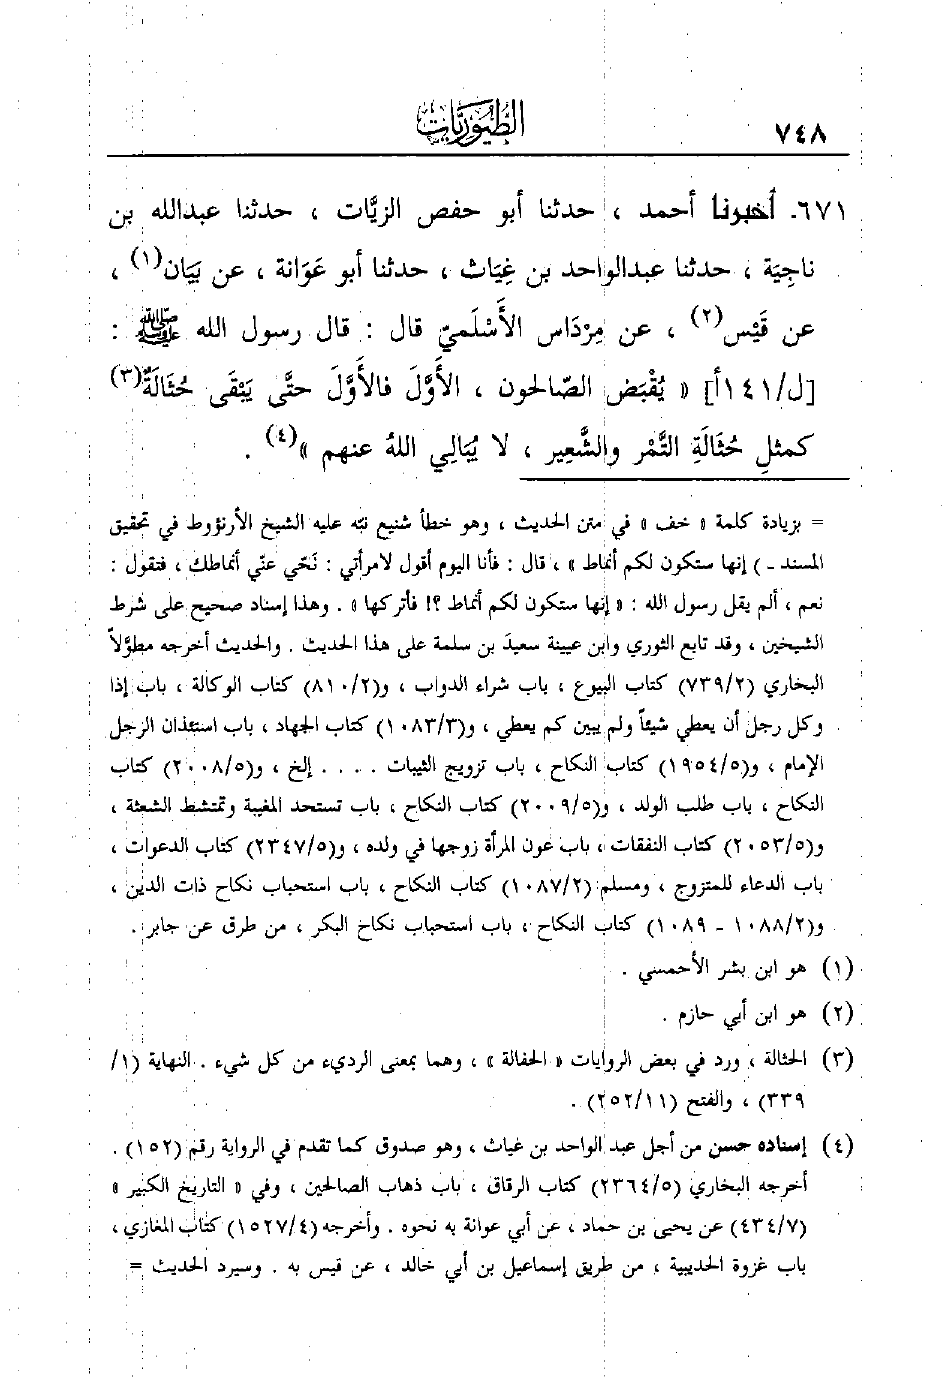 ٧٤٨
الطيوريات
٦٧١. أخبرنا أحمد ، حدثنا أبو حفص الزيَّات ، حدثنا عبدالله بن
ناجِيَة ، حدثنا عبدالواحد بن غِيَاث ، حدثنا أبو عَوَانة ، عن بَيَان(١) ،
عن قَيْس(٢) ، عن مِرْدَاس الأَسْلَميّ قال : قال رسول الله ﷺ :
[ل/١٤١أ] « يُقْبَض الصّالحون ، الأَوَّلَ فالأَوَّلَ حتَّى يَبْقَى حُثَالَةٌ(٣)
كمثلِ حُثَالَةِ التَّمْر والشَّعِير ، لا يُبَالِي اللهُ عنهم »(٤) .
= بزيادة كلمة « خف » في متن الحديث ، وهو خطأ شنيع نبّه عليه الشيخ الأرنؤوط في تحقيق
المسند - ) إنها ستكون لكم أنماط » ، قال : فأنا اليوم أقول لامرأتي : نَحّي عنّي أنماطك ، فتقول :
نعم ، ألم يقل رسول الله : « إنها ستكون لكم أنماط ؟! فأتركها » . وهذا إسناد صحيح على شرط
الشيخين ، وقد تابع الثوري وابن عيينة سعيدَ بن سلمة على هذا الحديث . والحديث أخرجه مطوَّلاً
البخاري (٧٣٩/٢) كتاب البيوع ، باب شراء الدواب ، و(٨١٠/٢) كتاب الوكالة ، باب إذا
وكل رجل أن يعطي شيئاً ولم يبين كم يعطي ، و(١٠٨٣/٣) كتاب الجهاد ، باب استئذان الرجل
الإمام ، و(١٩٥٤/٥) كتاب النكاح ، باب تزويج الثيبات .... إلخ ، و(٢٠٠٨/٥) كتاب
النكاح ، باب طلب الولد ، و(٢٠٠٩/٥) كتاب النكاح ، باب تستحد المغيبة وتمتشط الشعثة ،
و(٢٠٥٣/٥) كتاب النفقات ، باب عون المرأة زوجها في ولده ، و(٢٣٤٧/٥) كتاب الدعوات ،
باب الدعاء للمتزوج ، ومسلم (١٠٨٧/٢) كتاب النكاح ، باب استحباب نكاح ذات الدين ،
و(١٠٨٨/٢ - ١٠٨٩) كتاب النكاح ، باب استحباب نكاح البكر ، من طرق عن جابر .
(١) هو ابن بشر الأحمسي .
(٢) هو ابن أبي حازم .
(٣) الحثالة ، ورد في بعض الروايات « الحفالة » ، وهما بمعنى الرديء من كل شيء . النهاية (١/
٣٣٩) ، والفتح (٢٥٢/١١) .
(٤) إسناده حسن من أجل عبد الواحد بن غياث ، وهو صدوق كما تقدم في الرواية رقم (١٥٢) .
أخرجه البخاري (٢٣٦٤/٥) كتاب الرقاق ، باب ذهاب الصالحين ، وفي « التاريخ الكبير »
(٤٣٤/٧) عن يحيى بن حماد ، عن أبي عوانة به نحوه . وأخرجه (١٥٢٧/٤) كتاب المغازي ،
باب غزوة الحديبية ، من طريق إسماعيل بن أبي خالد ، عن قيس به . وسيرد الحديث =